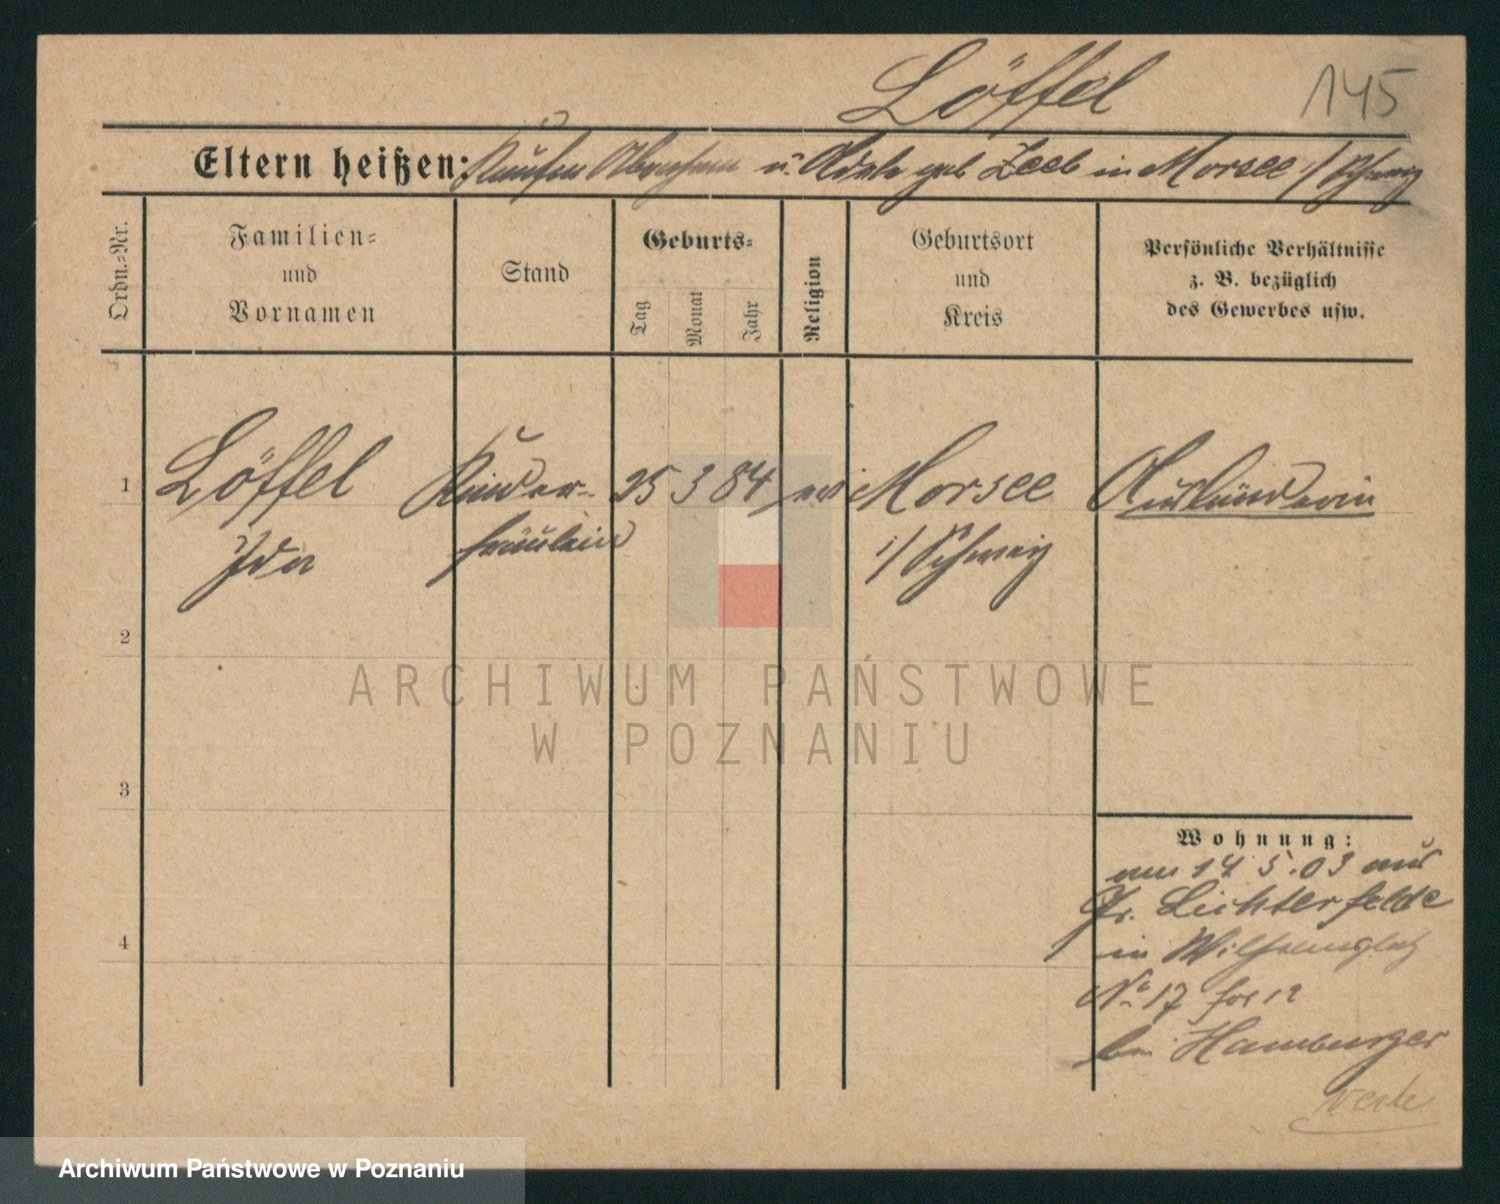 Löffel 145
Eltern heißen: Kaufm Abraham u. Adele geb Zeeb in Morsee i/ Schweiz
Ordn.-Nr.
Familien-
und
Vornamen
Stand
Geburts-
Tag
Monat
Jahr
Religion
Geburtsort
und
Kreis
Persönliche Verhältnisse
z. B. bezüglich
des Gewerbes usw.
1 Löffel Kinder- 25 3 84 ev Morsee Ausländerin
Ida fräulein i/ Schweiz
2
3
4
Wohnung:
am 14 5.03 aus
Gr. Lichterfelde
in Wilhelmplatz
No 17
bei Hamburger
ARCHIWUM PAŃSTWOWE
W POZNANIU
Archiwum Państwowe w Poznaniu